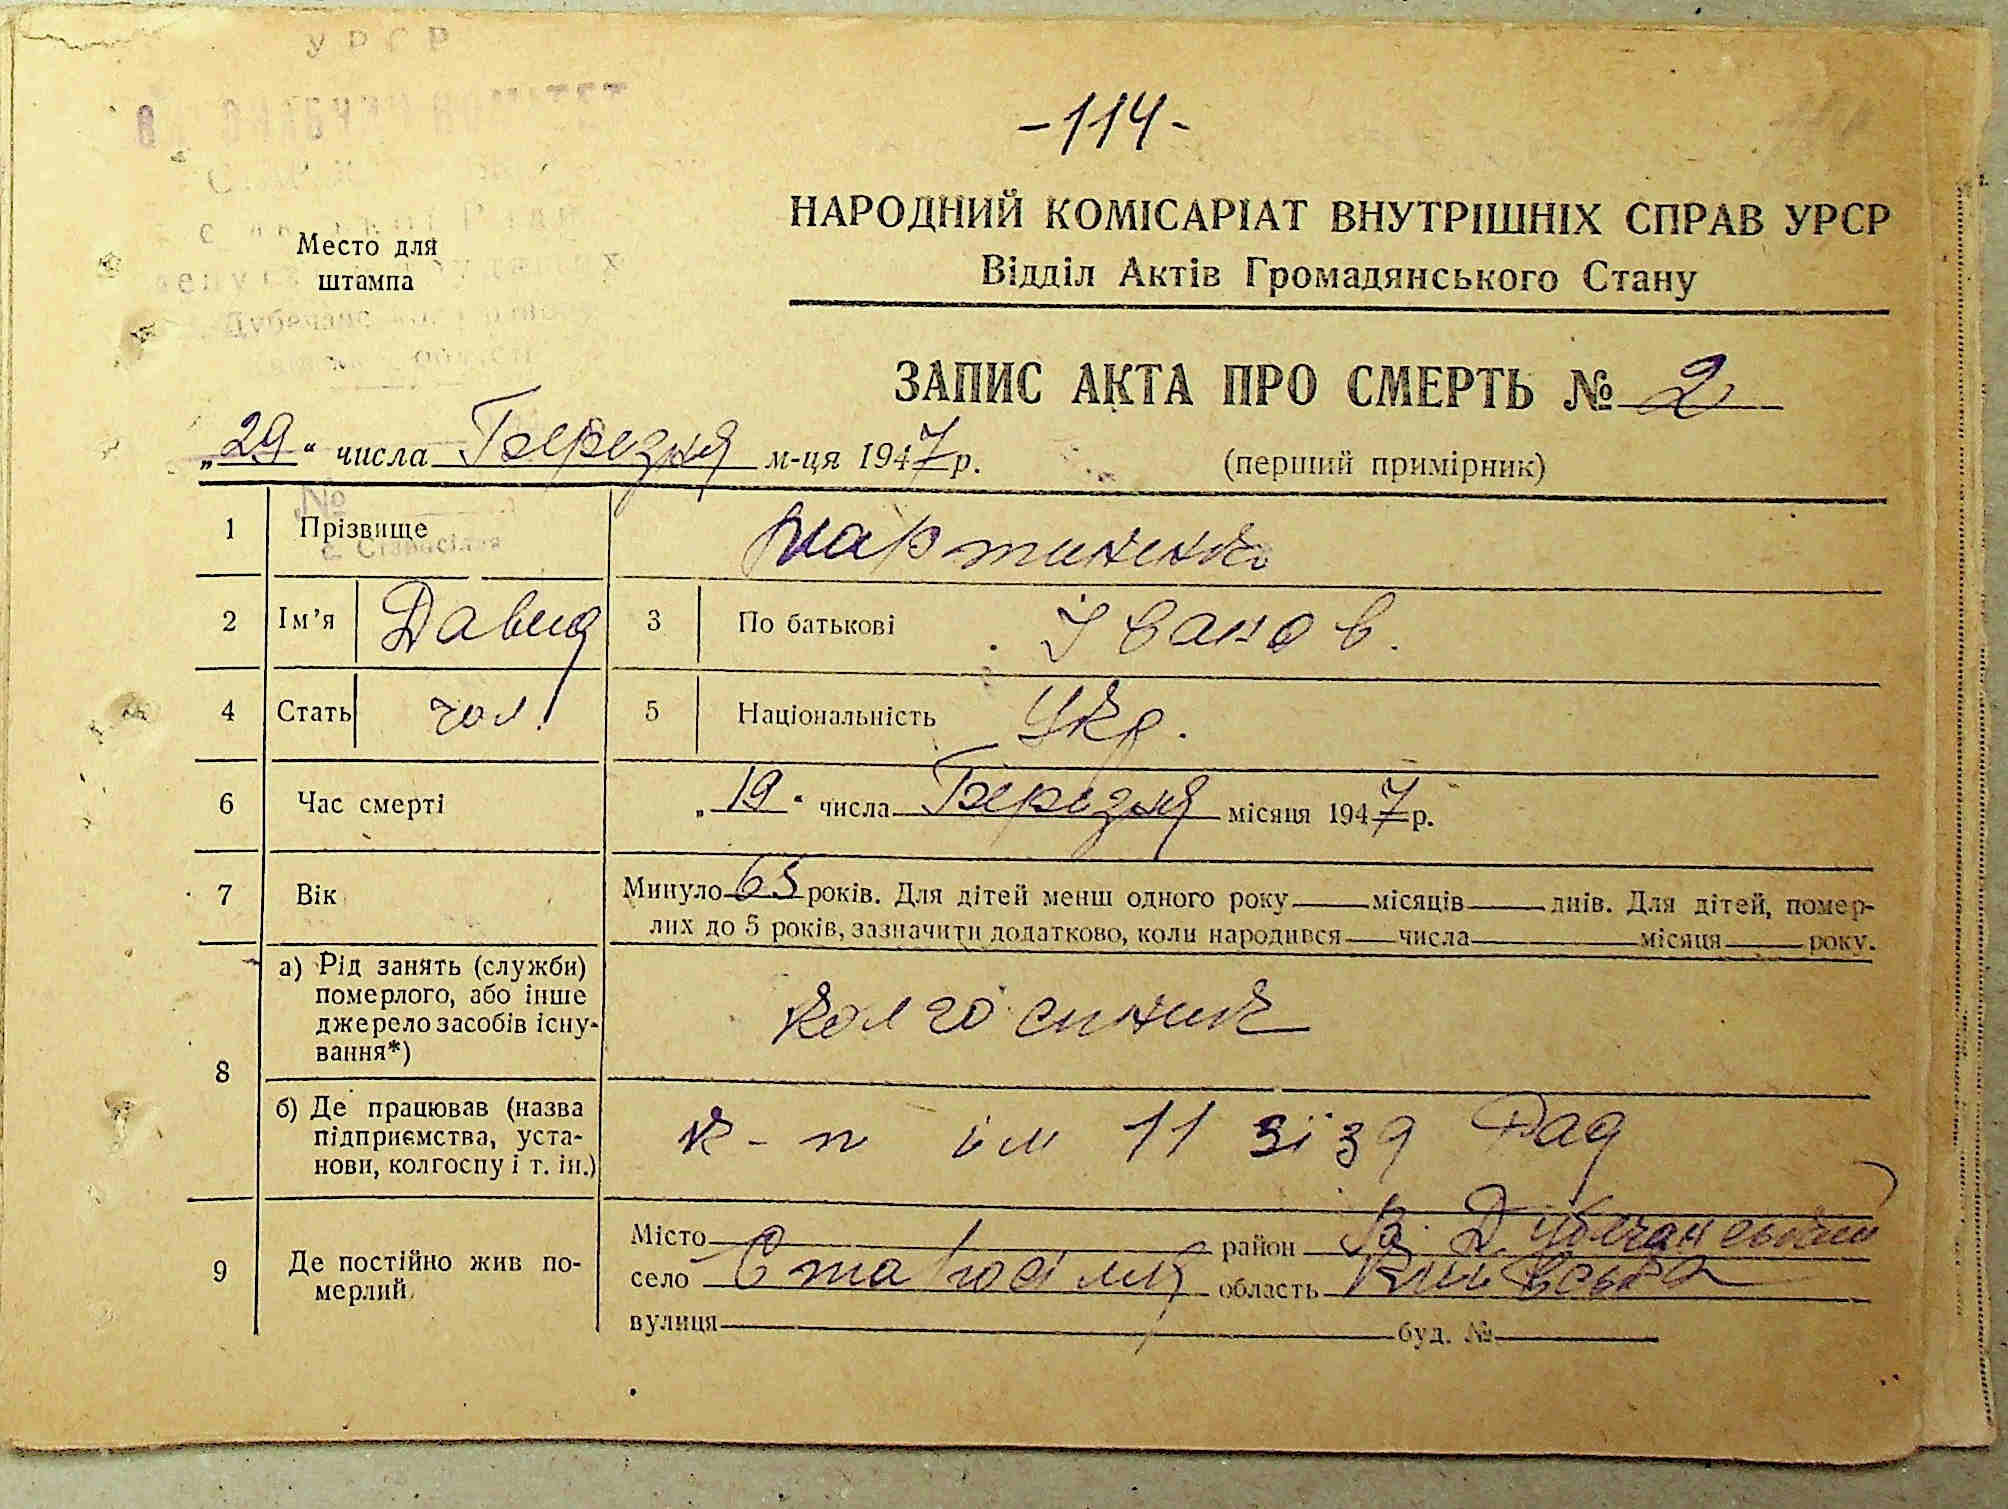 УРСР
-114-
НАРОДНИЙ КОМІСАРІАТ ВНУТРІШНІХ СПРАВ УРСР
Відділ Актів Громадянського Стану
Место для
штампа
ЗАПИС АКТА ПРО СМЕРТЬ № 2
„29“ числа Березня м-ця 1947 р.
(перший примірник)
№
1 Прізвище Мартиненко
2 Ім’я Давид 3 По батькові Іванов.
4 Стать чол. 5 Національність Укр.
6 Час смерті „19“ числа Березня місяця 1947 р.
7 Вік Минуло 65 років. Для дітей менш одного року місяців днів. Для дітей, помер-
лих до 5 років, зазначити додатково, коли народився числа місяця року.
8 а) Рід занять (служби)
померлого, або інше
джерело засобів існу-
вання*)
колгоспник
б) Де працював (назва
підприємства, уста-
нови, колгоспу і т. ін.)
к-п ім 11 зїзд Рад
9 Де постійно жив по-
мерлий
Місто район В. Дубечанський
село Ставосілля область Київська
вулиця буд. №